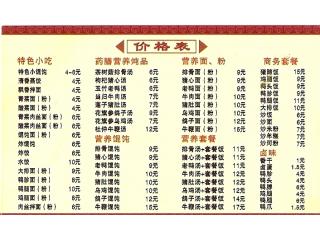 价格表
特色小吃
特色小馄饨 4-6元
清香蒸饭 4元
飘香拌面 4元
青菜面(粉) 4元
菜肉丝面(粉) 6元
鸡蛋面(粉) 6元
炸馄饨 6元
炒饺 6元
水饺 6元
大排面(粉) 9元
鸭腿面(粉) 10元
鸡腿面(粉) 10元
肉丝拌面(粉) 6元
药膳营养炖品
茶树菇排骨汤 6元
枸杞猪心汤 6元
玉竹老鸭汤 6元
当归牛肉汤 7元
莲子猪肚汤 7元
花旗参鸽子汤 7元
花旗参乌鸡汤 7元
杜仲牛鞭汤 12元
营养馄饨
排骨馄饨 9元
猪心馄饨 9元
老鸭馄饨 9元
牛肉馄饨 10元
猪肚馄饨 10元
乌鸡馄饨 10元
鸽子馄饨 10元
牛鞭馄饨 15元
营养面、粉
排骨面(粉) 9元
猪心面(粉) 9元
老鸭面(粉) 9元
牛肉面(粉) 10元
猪肚面(粉) 10元
乌鸡面(粉) 10元
鸽子面(粉) 10元
牛鞭面(粉) 15元
营养套餐
排骨汤+套餐饭 11元
猪心汤+套餐饭 11元
老鸭汤+套餐饭 11元
牛肉汤+套餐饭 12元
猪肚汤+套餐饭 12元
乌鸡汤+套餐饭 12元
鸽子汤+套餐饭 12元
牛鞭汤+套餐饭 17元
商务套餐
猪脚饭 15元
大排饭 15元
鸭腿饭 15元
鸡腿饭 15元
炒饭
炒面
炒米粉
卤味
香干 1元
卤蛋 1.5元
鸭胗 4元
鸡腿 6元
鸭腿 6元
鸭爪 1.5元